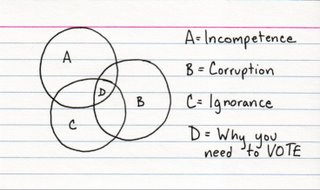 A
D
B
C
A = Incompetence
B = Corruption
C = Ignorance
D = Why you
need to VOTE